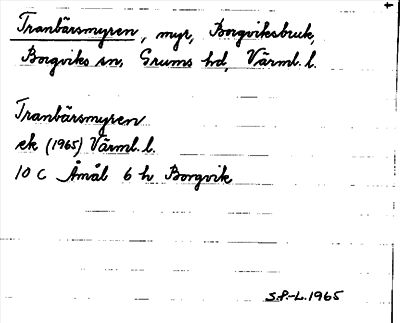 Tranbärsmyren, myr, Borgviksbruk,
Borgviks sn, Grums hd, Värml. l.
Tranbärsmyren
ek (1965) Värml. l.
10 C Åmål 6 h Borgvik
S.P.-L. 1965